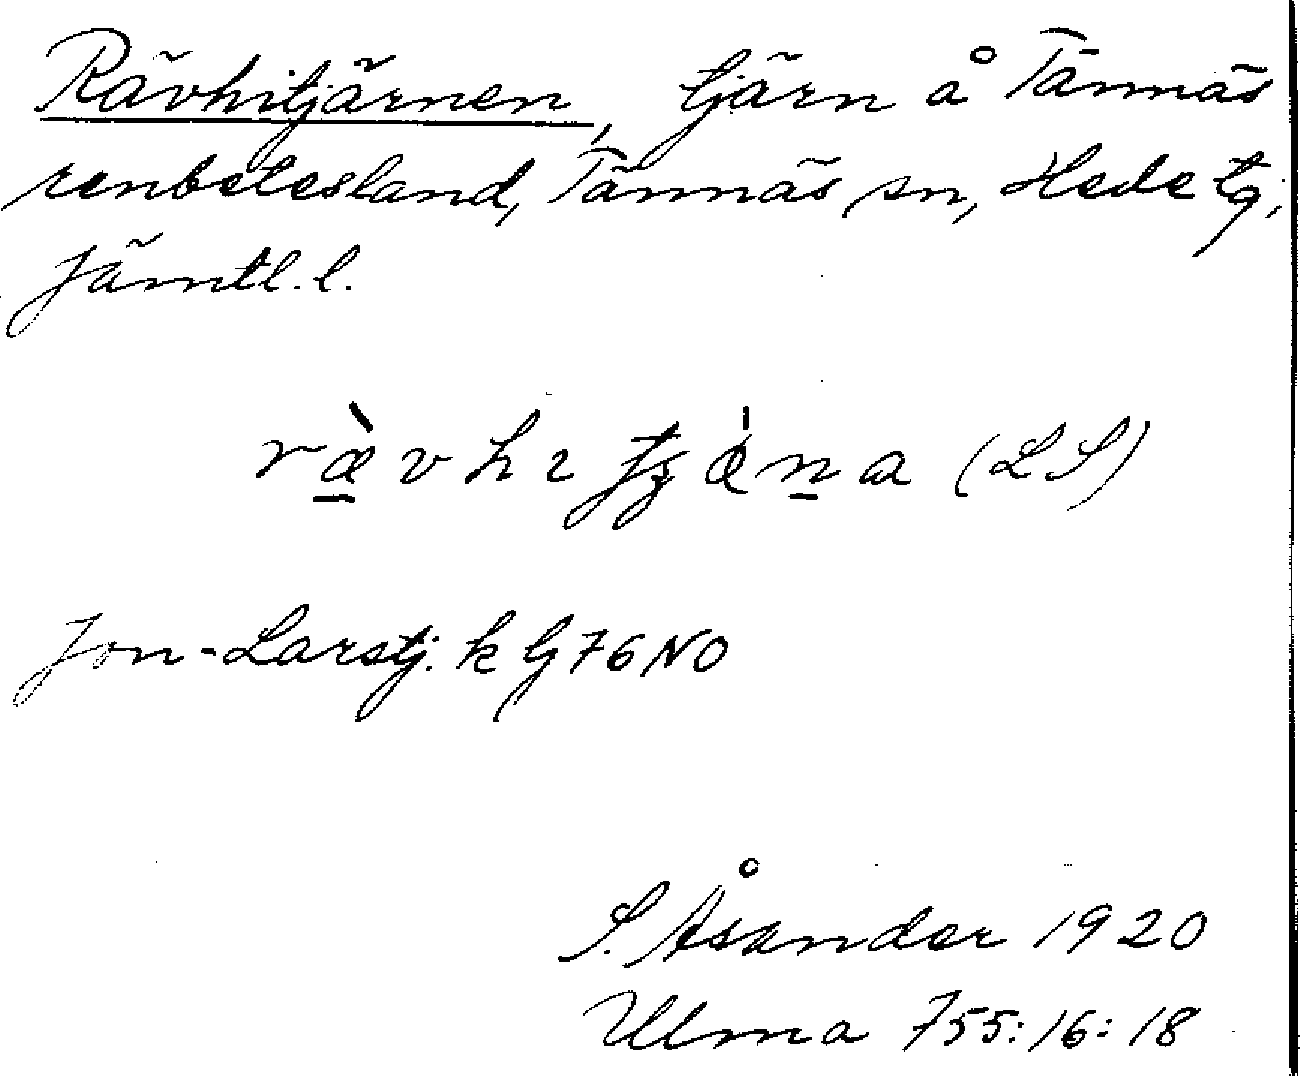 Rävhitjärnen, tjärn å Tännäs
renbetesland, Tännäs sn, Hede tg,
Jämtl. l.
(LS)
Jon-Larstj. k G 76 NO
S. Åsander 1920
Ulma 755:16:18